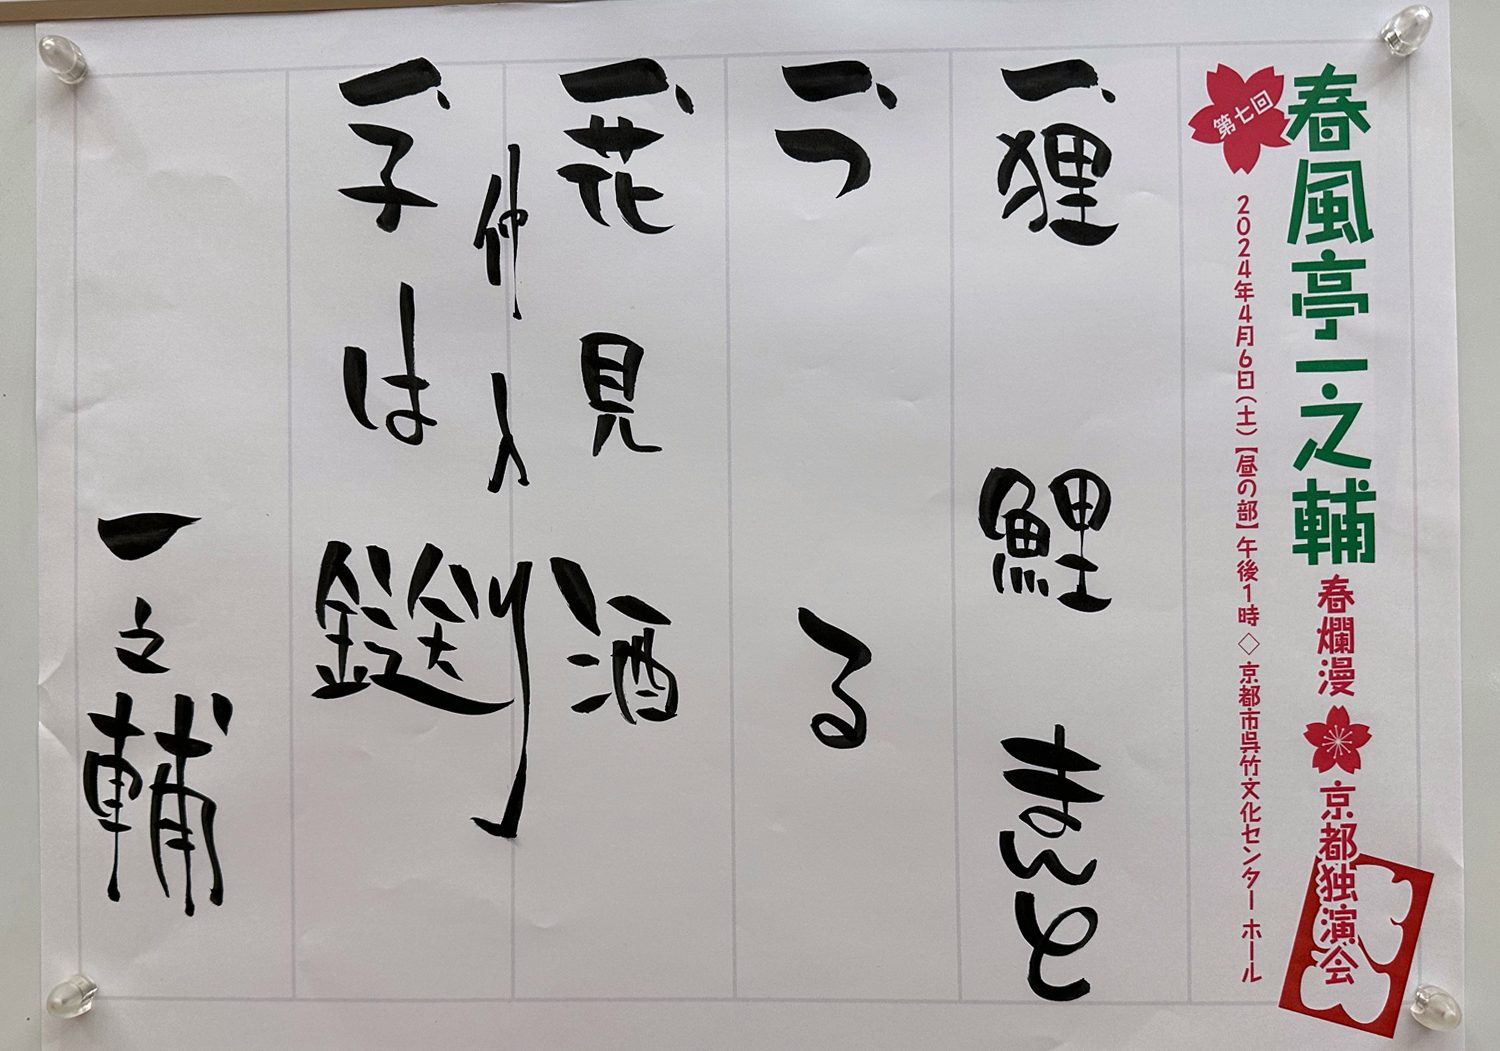 春風亭一之輔 春爛漫 京都独演会
第七回
2024年4月6日(土)【昼の部】午後1時◇京都市呉竹文化センター ホール
一、狸鯉 まんと
一、つる
一、花見酒
仲入り
一、子は鎹
一之輔